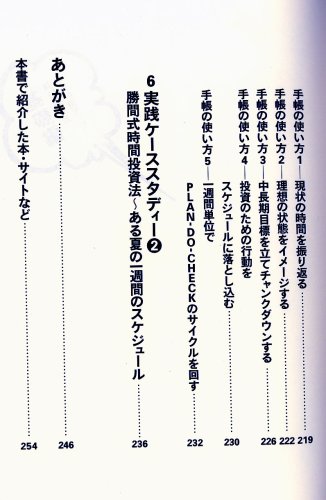 手帳の使い方1―現状の時間を振り返る 219
手帳の使い方2―理想の状態をイメージする 222
手帳の使い方3―中長期目標を立てチャンクダウンする 226
手帳の使い方4―投資のための行動を
スケジュールに落とし込む 230
手帳の使い方5―一週間単位で
PLAN-DO-CHECKのサイクルを回す 232
6 実践ケーススタディー❷
勝間式時間投資法～ある夏の一週間のスケジュール 236
あとがき 246
本書で紹介した本・サイトなど 254